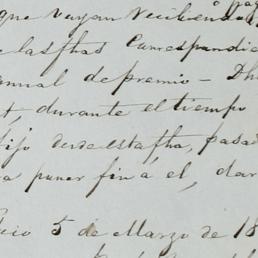 que vayan recibiendo
elasfhas Correspondie
annual de premio - Dh
t, durante el tiempo
fijo desde esta fha, pasad
a poner fin á el, dar
5 de Marzo de 18